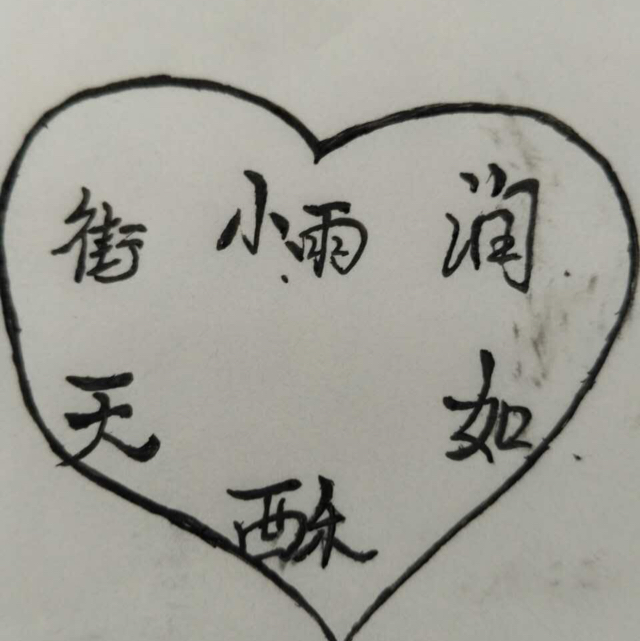 街 小雨 润
天 如
酥